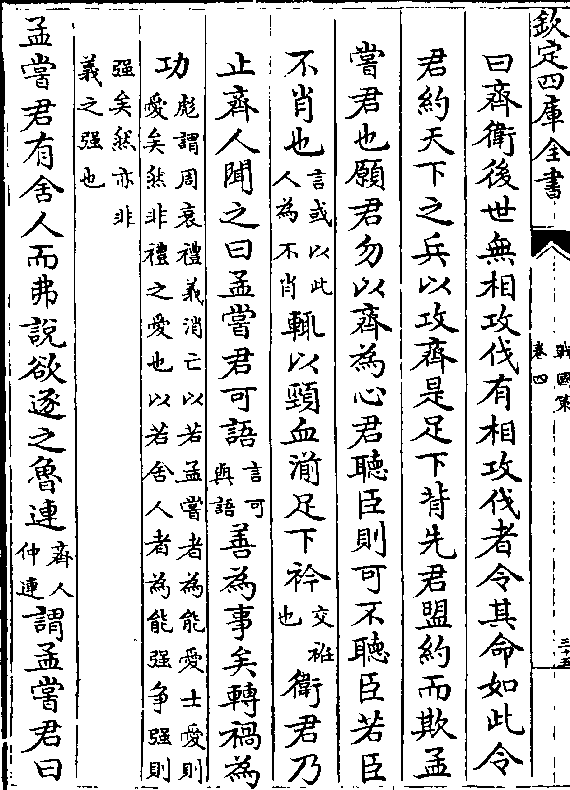 欽定四庫全書
戰國策
卷四
三十五
曰齊衛後世無相攻伐有相攻伐者令其命如此今
君約天下之兵以攻齊是足下背先君盟約而欺孟
嘗君也願君勿以齊為心君聽臣則可不聽臣若臣
不肖也言或以此人為不肖輒以頸血湔足下衿交衽也衛君乃
止齊人聞之曰孟嘗君可語言可與語善為事矣轉禍為
功彪謂周衰禮義消亡以若孟嘗者為能愛士愛則愛矣然非禮之愛也以若舍人者為能强争强則
强矣然亦非義之强也
孟嘗君有舍人而弗說欲逐之魯連齊人仲連謂孟嘗君曰